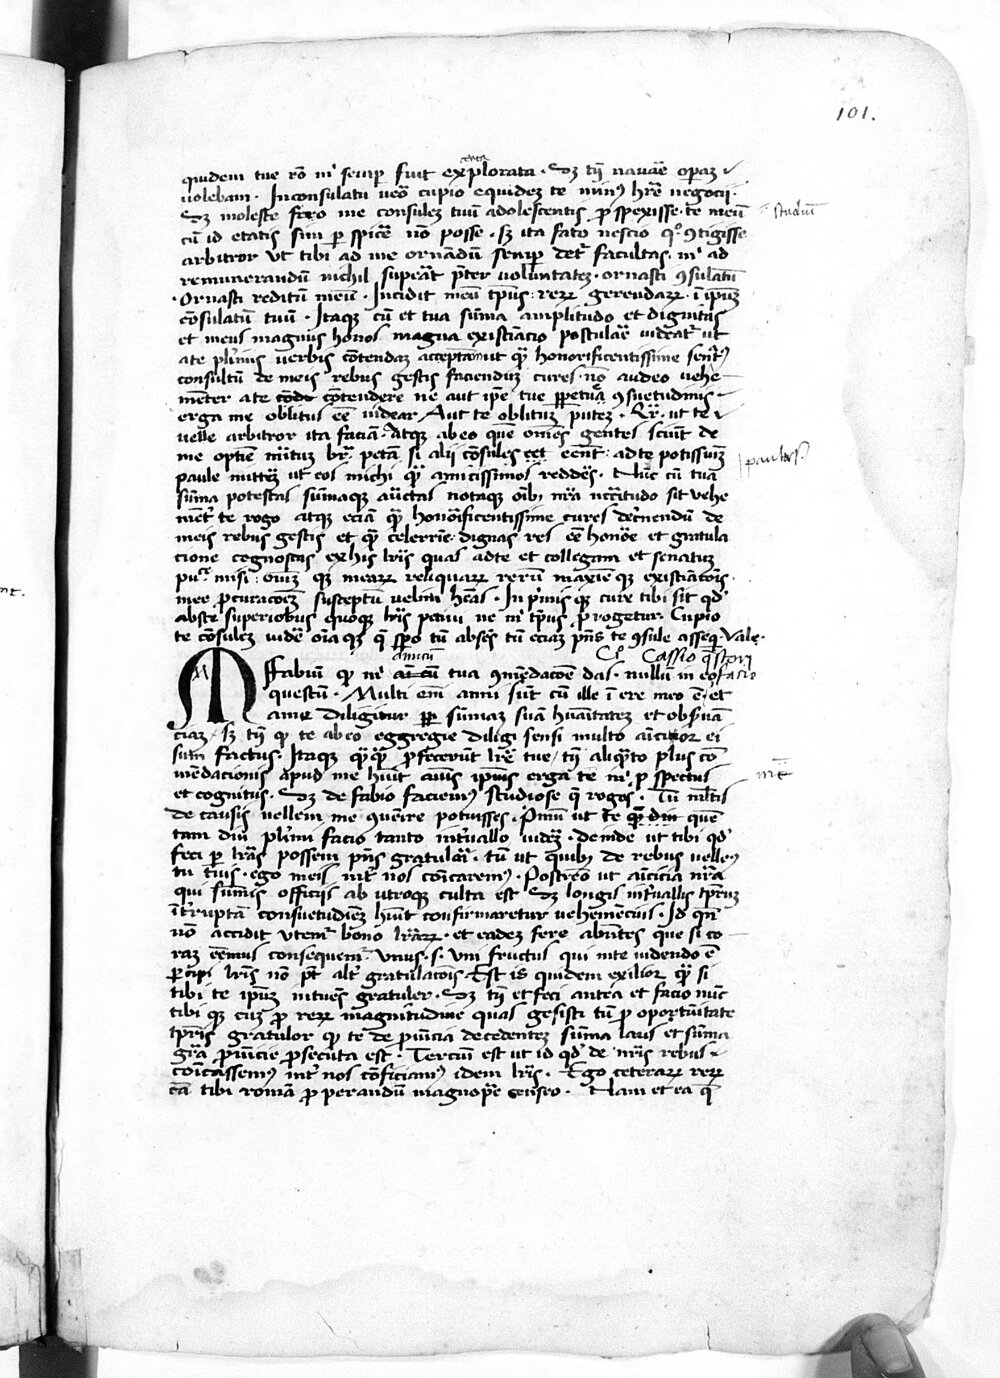 101.
quidem tue rō m̄ semp fuit explorata . Sꝫ tn̄ nauāe operaꝫ
uolebam . Inconsulatu ueō cupio equideꝫ te minꝯ hr̄e negocii .
Sꝫ moleste fero me consuleꝫ tuū adolescentis ꝑspexisse . te meū
studiū
cū id etatis sim ꝑspicē nō posse . Sꝫ ita fato nescio qº ꝯtigisse
arbitror ut tibi ad me ornādū semp det̄ facultas . m̄ ad
remunerandū nichil supeāt pter voluntateꝫ . ornasti ꝯsulatū
. Ornasti reditū meū . Incidit meū tp̄us : reꝝ gerendaꝝ . ī ip̄uꝫ
cōsulatū tuū . Itaqꝫ cū et tua sūma amplitudo et dignitas
et meus magnus honos magna existiācio postulāe videat̄ ut
ate pl'imis verbis cōtendaꝫ acceptāmut qꝫ honorificentissime senat'
consultū de meis rebus gestis faciendūꝫ cures . nō audeo uehe
mēter ate cōtendere ne aut ip̄e tue ꝑpetuā ꝯsuetudinis
erga me oblitus eē videar . Aut te oblituꝫ puteꝫ . Qr̄ . ut te
uelle arbitror ita faciā . Atqꝫ abeo quē om̄es gentes sciūt de
me optīe m̄itum
petā si alii cōsules eēt eēnt : adte potissimūꝫ
paulus
paule mitteꝫ ut eos michi qꝫ amicissimos reddēs . Nūc cū tua
sūma potestas sūmaqꝫ auctas notaqꝫ oībꝫ nr̄a nccitudo sit uehe
mēt̄ te rogo atqꝫ eciā qꝫ honōificentissime cures dec̄nendū de
meis rebus gestis et qꝫ celerrīe . dignas res eē honōe et gratula
cione cognosces ex his lr̄is quas adte et collegam et senatūꝫ
pu. misi : oīuꝫ qꝫ meaꝝ reliquaꝝ rerū maxīe qꝫ existiācōis
mee ꝓcuracōeꝫ susceptū velim hēas . In pimis qꝫ cure tibi sit qd
abste superiobus quoqꝫ lr̄is petiui ne m̄ tp̄us ꝓrogetur . Cupio
te cōsuleꝫ vidē oīa qꝫ
tū absēs tū eciaꝫ pn̄s te ꝯsule assequi . Vale .
C. Cassio q̄stori
amicū
M Fabiū ꝙ m̄ tua ꝯmēdacōe das . nullū in eo facio
questū . Multi em̄ anni sūt cū ille ī ere meo ē . et
ame diligitur ꝓp sūmaꝫ suā hūaitateꝫ et obsuā
ciaꝫ . Sꝫ tn̄ ꝙ te abeo eggregie diligi sensi multo aīcior ei
sum factus . Itaqꝫ qꝫqꝫ ꝓfecerūt lr̄e tue / tn̄ aliqto plus cō
mēdacionis apud me huit aīus ip̄ius erga te m̄ ꝑspectus
mē
et cognitus . Sꝫ de fabio faciemꝯ studiose q̄ rogas . Tu ml̄tis
de causis vellem me quenire potuisses . Pmū ut te quē
tam diu pl'imi facio tanto int̄uallo videꝫ . deinde ut tibi qd
feci ꝑ lr̄as possem pn̄s gratulāi . tū ut quibꝫ de rebus uellemꝯ
tu tuis . ego meis int̄ nos cōicaremꝯ . Postremo ut aīcicia nr̄a
qui sūmis officiis ab utroqꝫ culta est Sꝫ longis int̄uallis tp̄rum
īt̄ruptā consuetudinēꝫ huit confirmaretur vehemēcius . Id qm̄
nō accidit utem̄ bono lr̄aꝝ . et eadeꝫ fere absētes que si co
raꝫ eēmus consequem̄ . Unus . s . ille fructus qui inte videndo ē
ꝑcipi lr̄is nō pt̄ . alt̄ gratulacōis . Est is quidem exilior qꝫ si
tibi te ipūꝫ intuēs gratuler . Sꝫ tn̄ et feci antea et facio nūc
tibi qꝫ cuꝫ ꝓ reꝝ magnitudine quas gesisti tū ꝓ oportūitate
tp̄ris gratulor ꝙ te de ꝓuīcia decedenteꝫ sūma laus et sūma
gr̄a ꝓuīcie ꝓsecuta est . Tercium est ut id qd de nr̄is rebus
cōicassemꝯ int̄ nos cōficiamꝯ idem lr̄is . Ego ceteraꝝ reꝝ
cā tibi romā ꝓperandū magnopē censeo . Nam et ea q̄